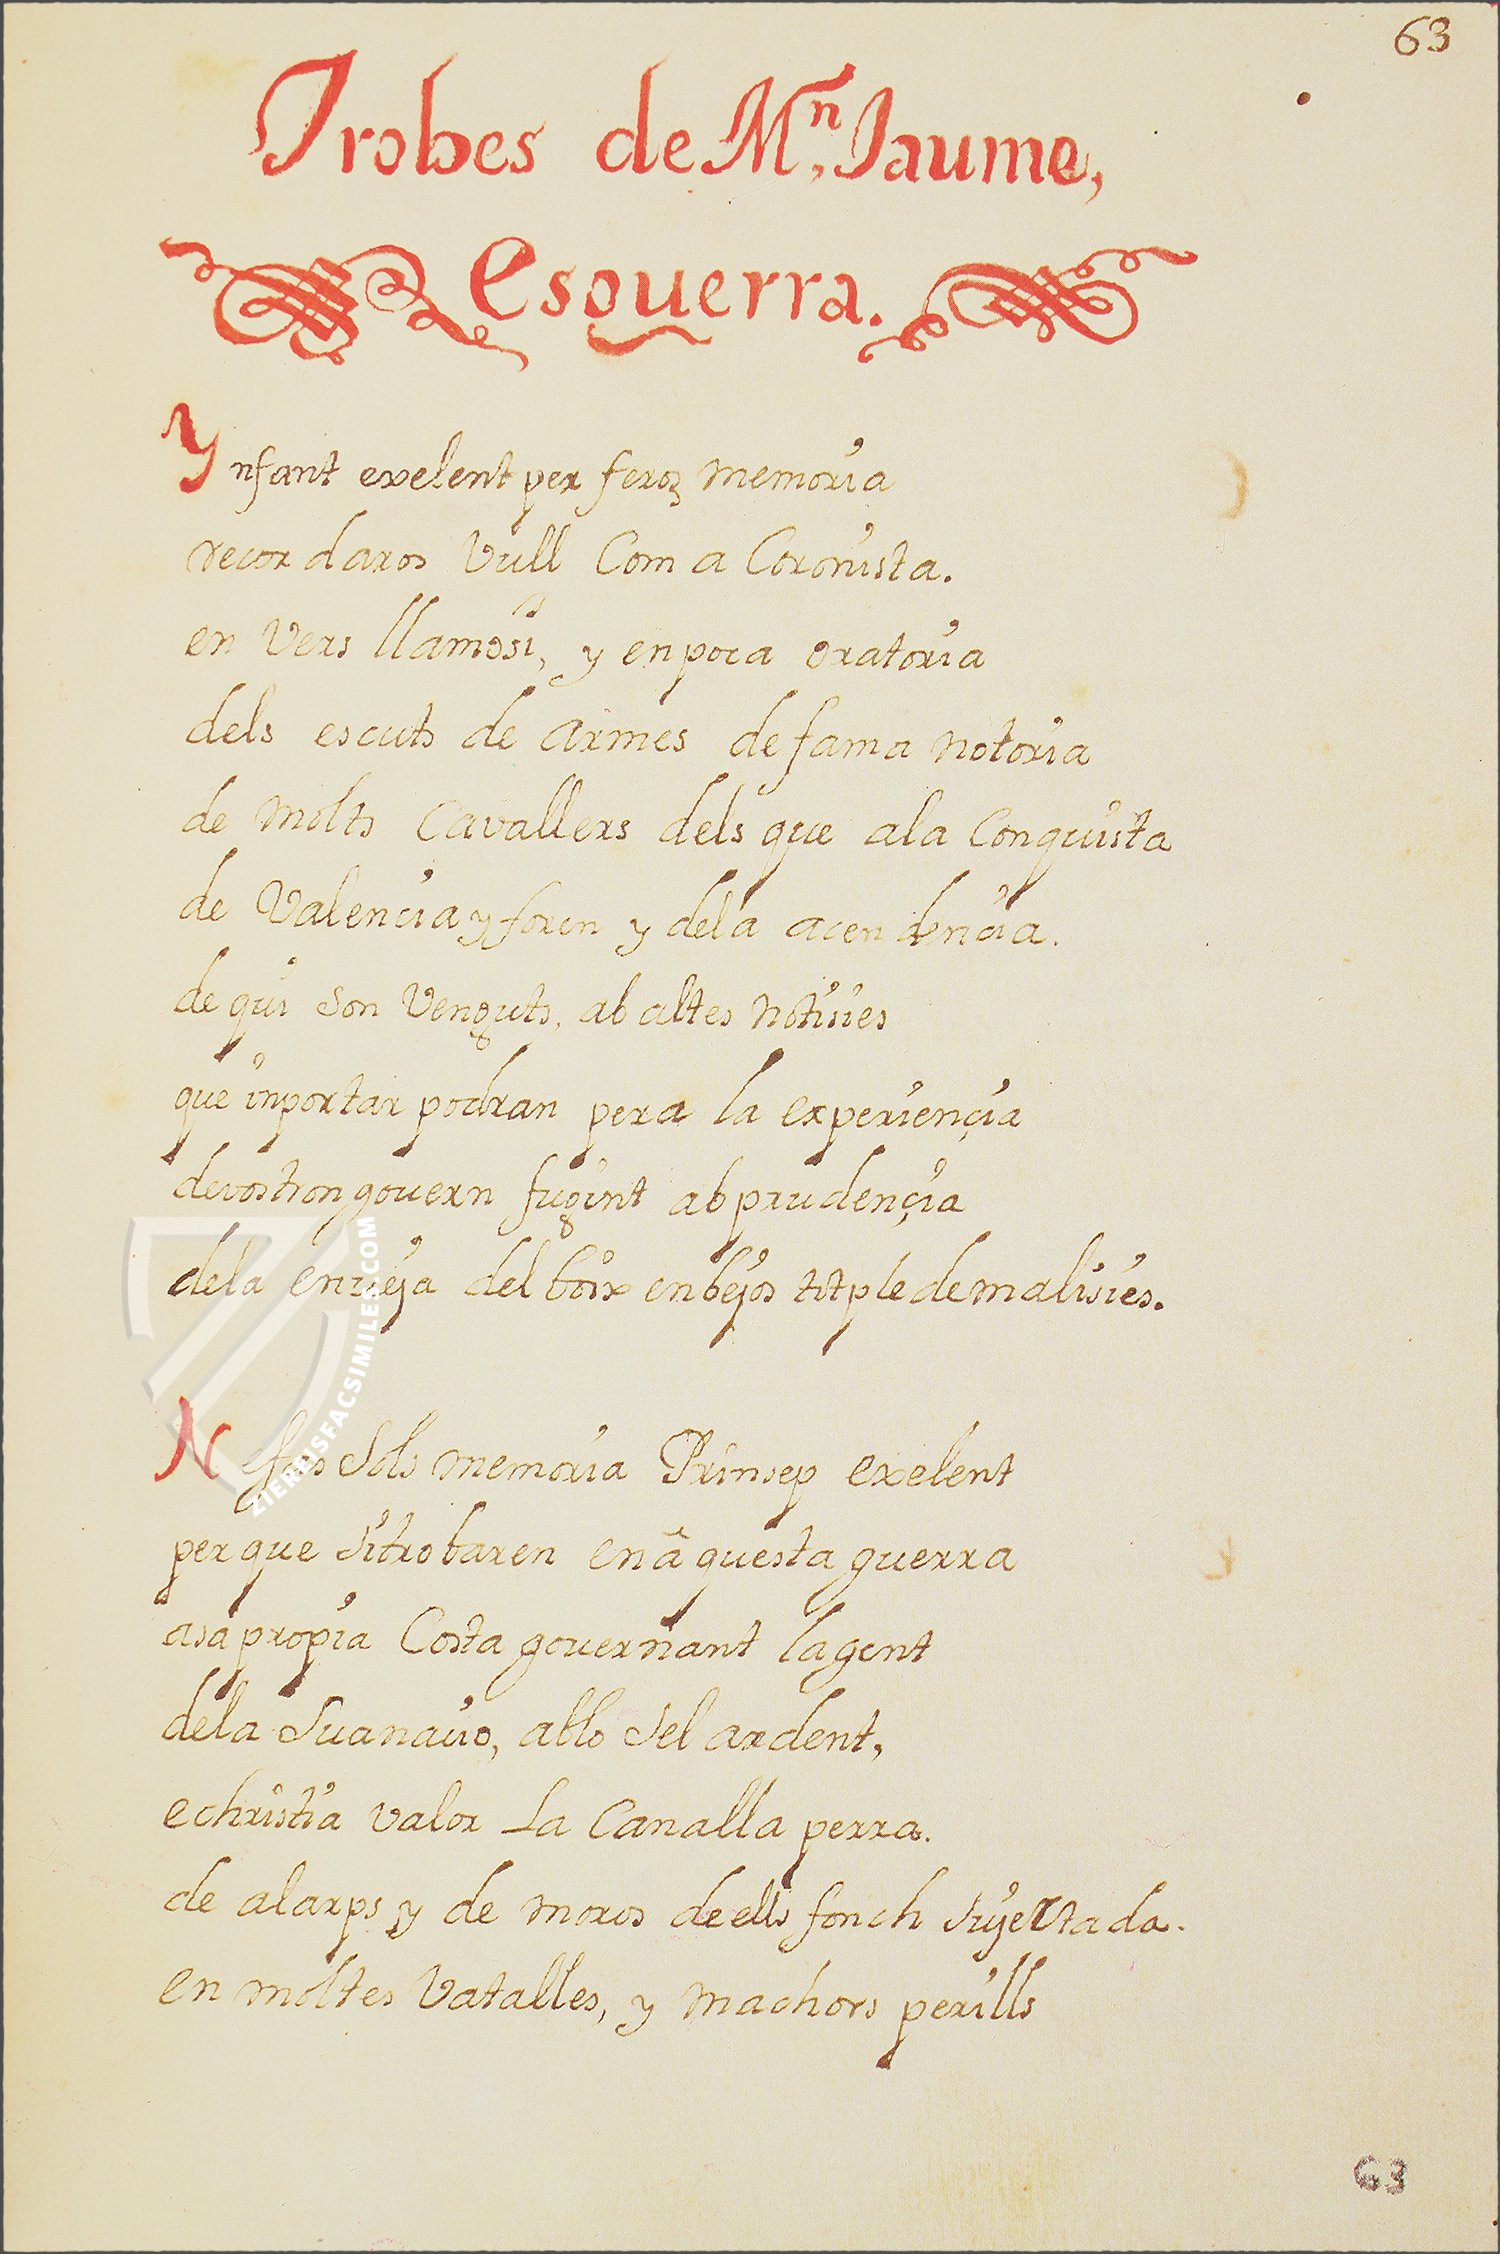 63
Trobes de Mn. Jaume,
Esquerra.
Ynfant exelent per feroz memoria
recordaros Vull Com a Coronista.
en Vers llamosi, y en poca oratoria
dels escuts de armes de fama notoria
de molts Cavallers dels que ala Conquista
de Valencia y foren y dela acendencia.
de qui son Venguts, ab altes notisies
que inportar podran pera la experiençia
devostron govern fugint ab prudençia
dela enveja del boix enbejos tot ple de malisies.
No fas sols memoria Prinsep exelent
per que sitrobaren en aquesta guerra
asa propia Costa governant la gent
dela Suanavio, ablo sel ardent,
e christia valor La Canalla perra.
de alarps y de moros de ells fonch sujectada.
en moltes Vatalles, y machors perills
63
ZIEREISFACSIMILES.COM